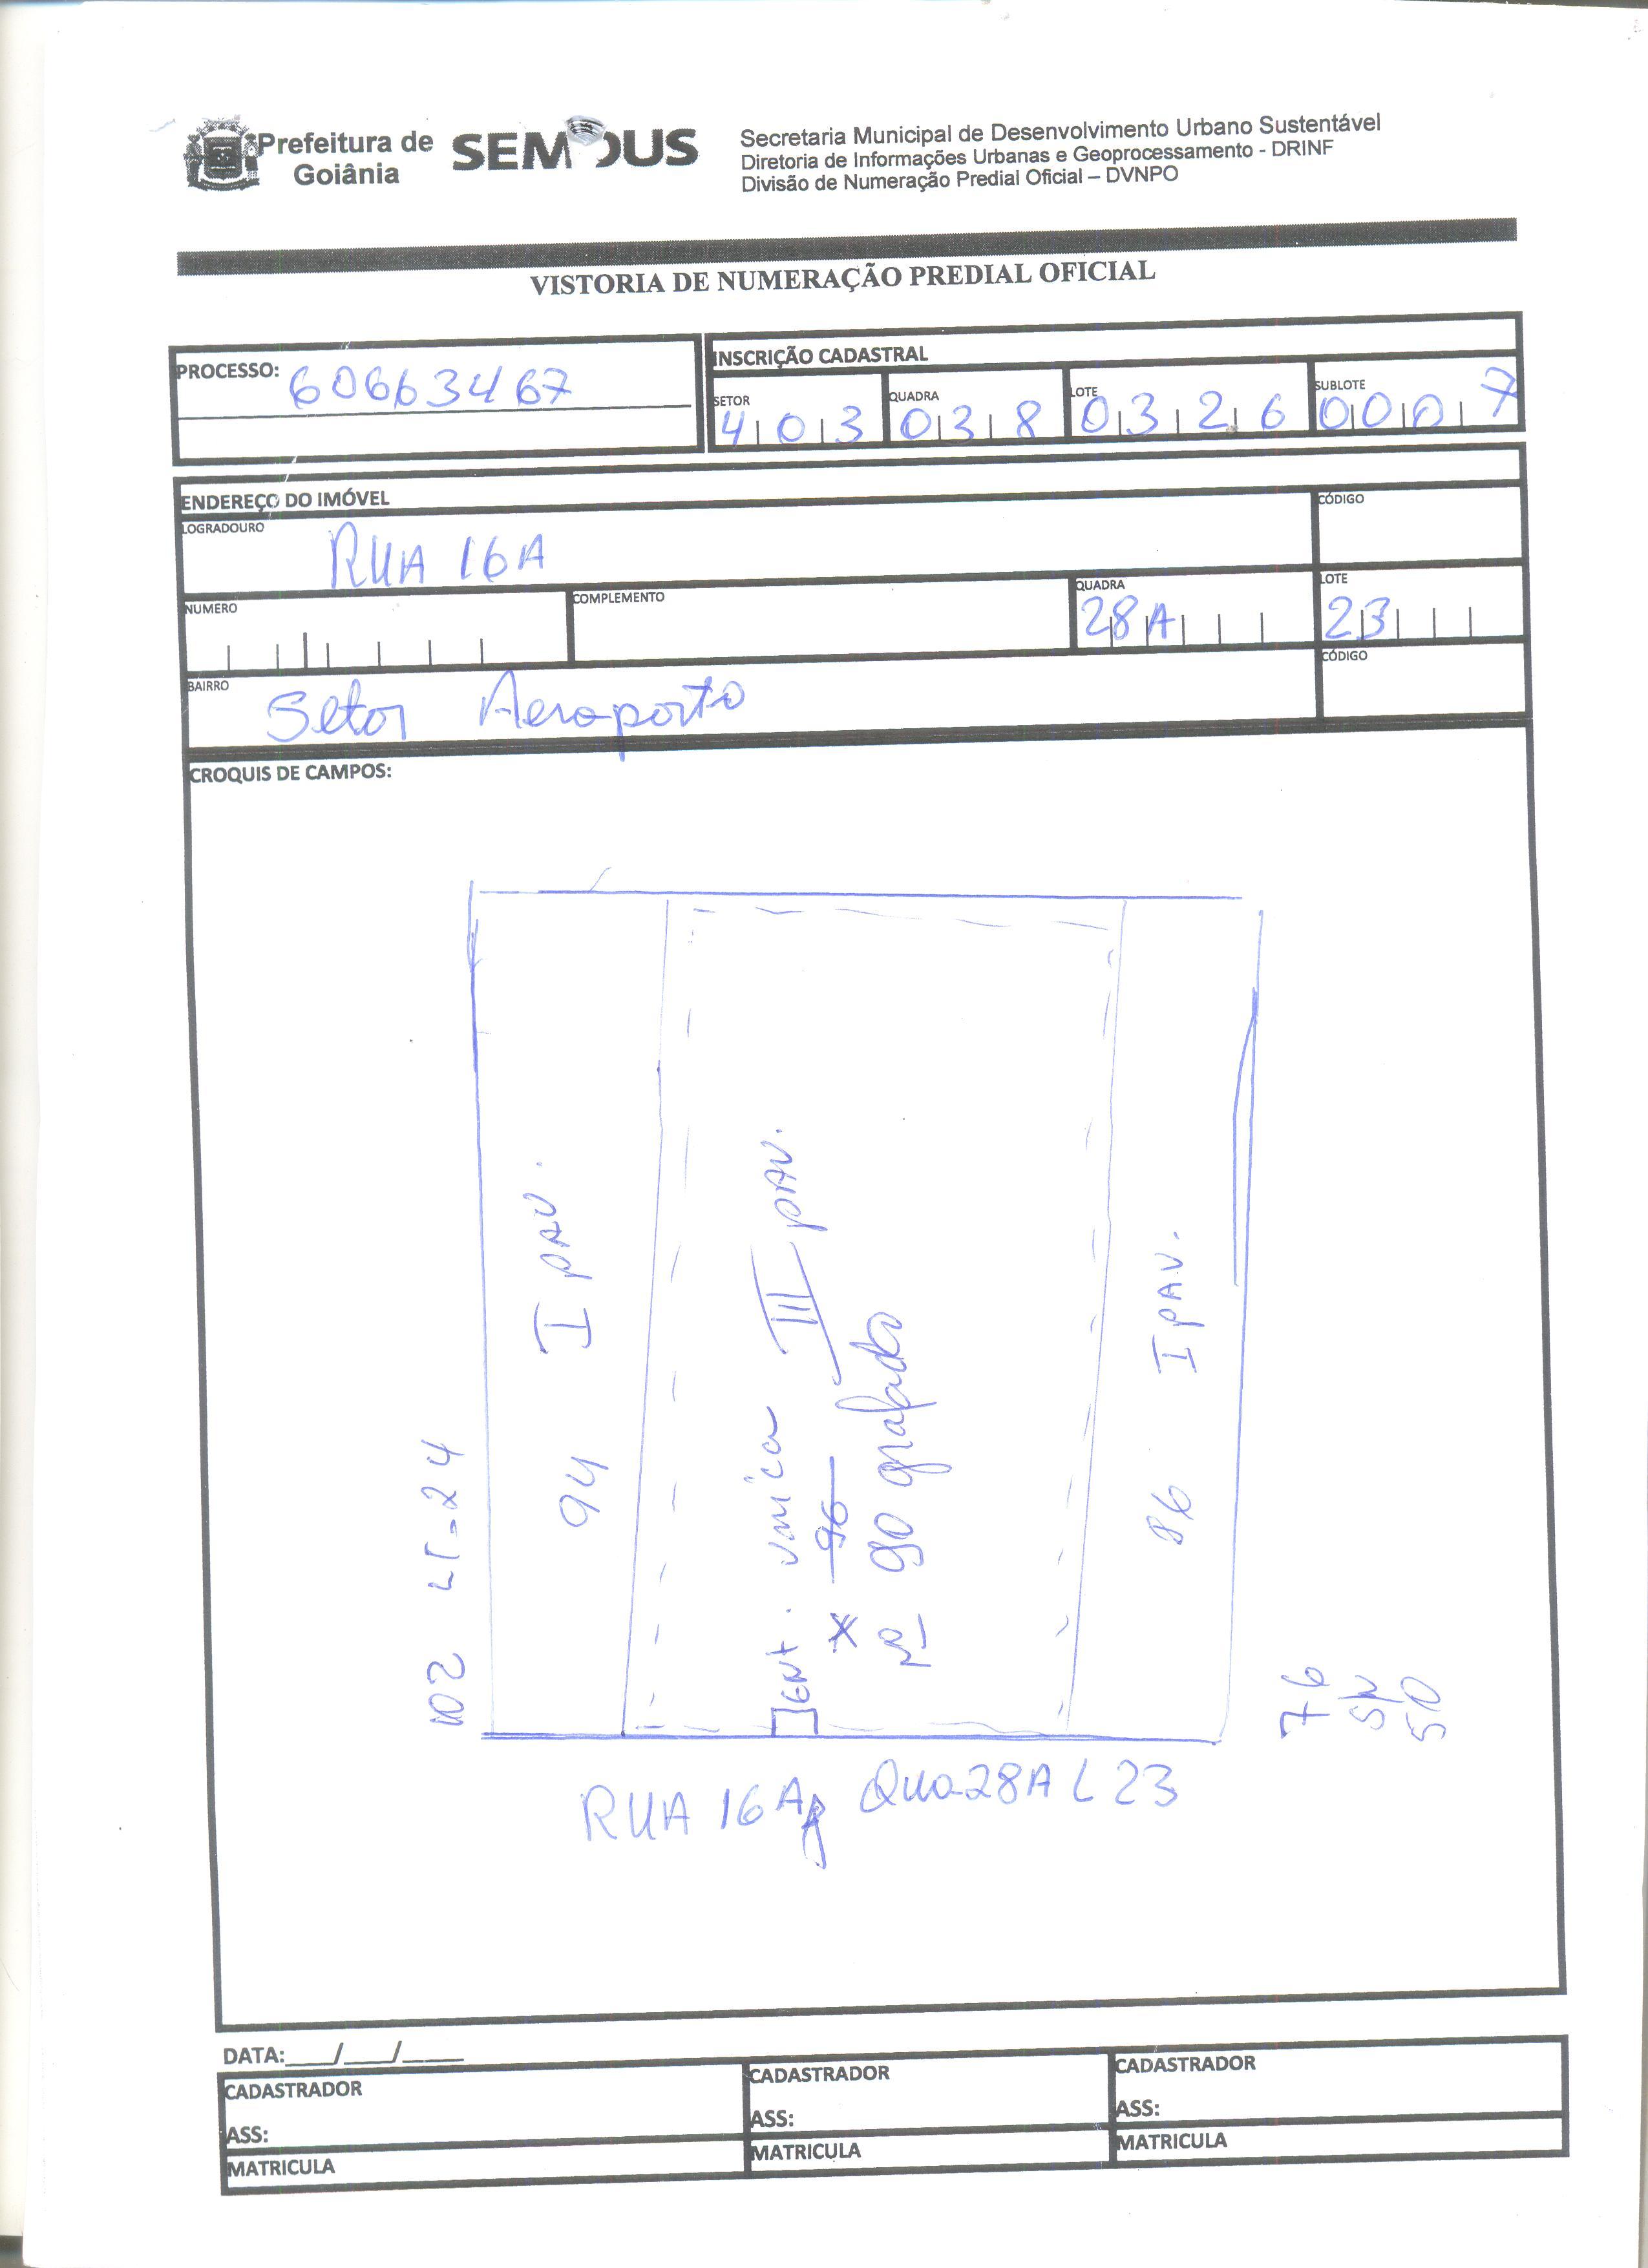 Prefeitura de Goiânia
SEMDUS
Secretaria Municipal de Desenvolvimento Urbano Sustentável
Diretoria de Informações Urbanas e Geoprocessamento - DRINF
Divisão de Numeração Predial Oficial – DVNPO
VISTORIA DE NUMERAÇÃO PREDIAL OFICIAL
PROCESSO: 60663467
INSCRIÇÃO CADASTRAL
SETOR QUADRA LOTE SUBLOTE
403 038 0326 0007
ENDEREÇO DO IMÓVEL
LOGRADOURO RUA 16A
CÓDIGO
NUMERO
COMPLEMENTO
QUADRA 28A
LOTE 23
BAIRRO Setor Aeroporto
CÓDIGO
CROQUIS DE CAMPOS:
102 LT-24
94 I PAV.
ENT. unica III PAV.
96
90 grafado
86 I PAV.
76
SN
510
RUA 16A Qua28A L 23
DATA:___/___/____
CADASTRADOR
ASS:
MATRICULA
CADASTRADOR
ASS:
MATRICULA
CADASTRADOR
ASS:
MATRICULA